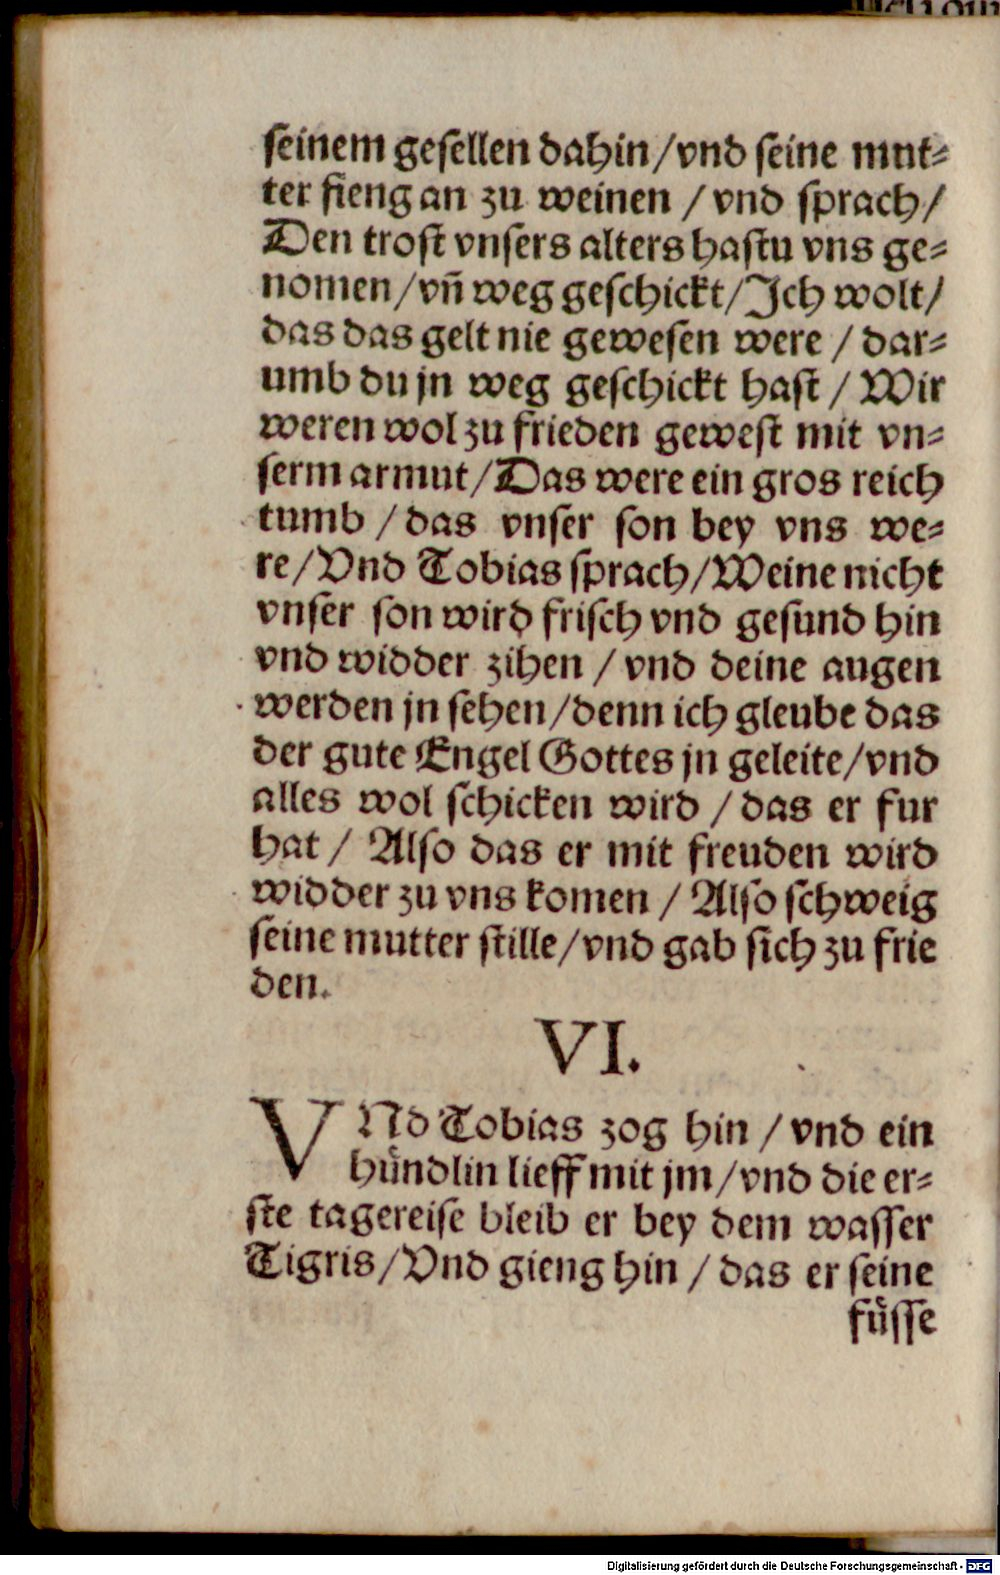 seinem gesellen dahin/vnd seine mut⸗
ter fieng an zu weinen / vnd sprach/
Den trost vnsers alters hastu vns ge⸗
nomen/vñ weg geschickt/Jch wolt/
das das gelt nie gewesen were / dar⸗
umb du jn weg geschickt hast / Wir
weren wol zu frieden gewest mit vn⸗
serm armut/Das were ein gros reich
tumb / das vnser son bey vns we⸗
re/Vnd Tobias sprach/Weine nicht
vnser son wird frisch vnd gesund hin
vnd widder zihen / vnd deine augen
werden jn sehen/denn ich gleube das
der gute Engel Gottes jn geleite/vnd
alles wol schicken wird / das er fur
hat / Also das er mit freuden wird
widder zu vns komen / Also schweig
seine mutter stille/vnd gab sich zu frie
den.
VI.
VNd Tobias zog hin / vnd ein
hůndlin lieff mit jm/vnd die er⸗
ste tagereise bleib er bey dem wasser
Tigris/Vnd gieng hin / das er seine
fůsse
Digitalisierung gefördert durch die Deutsche Forschungsgemeinschaft - DFG